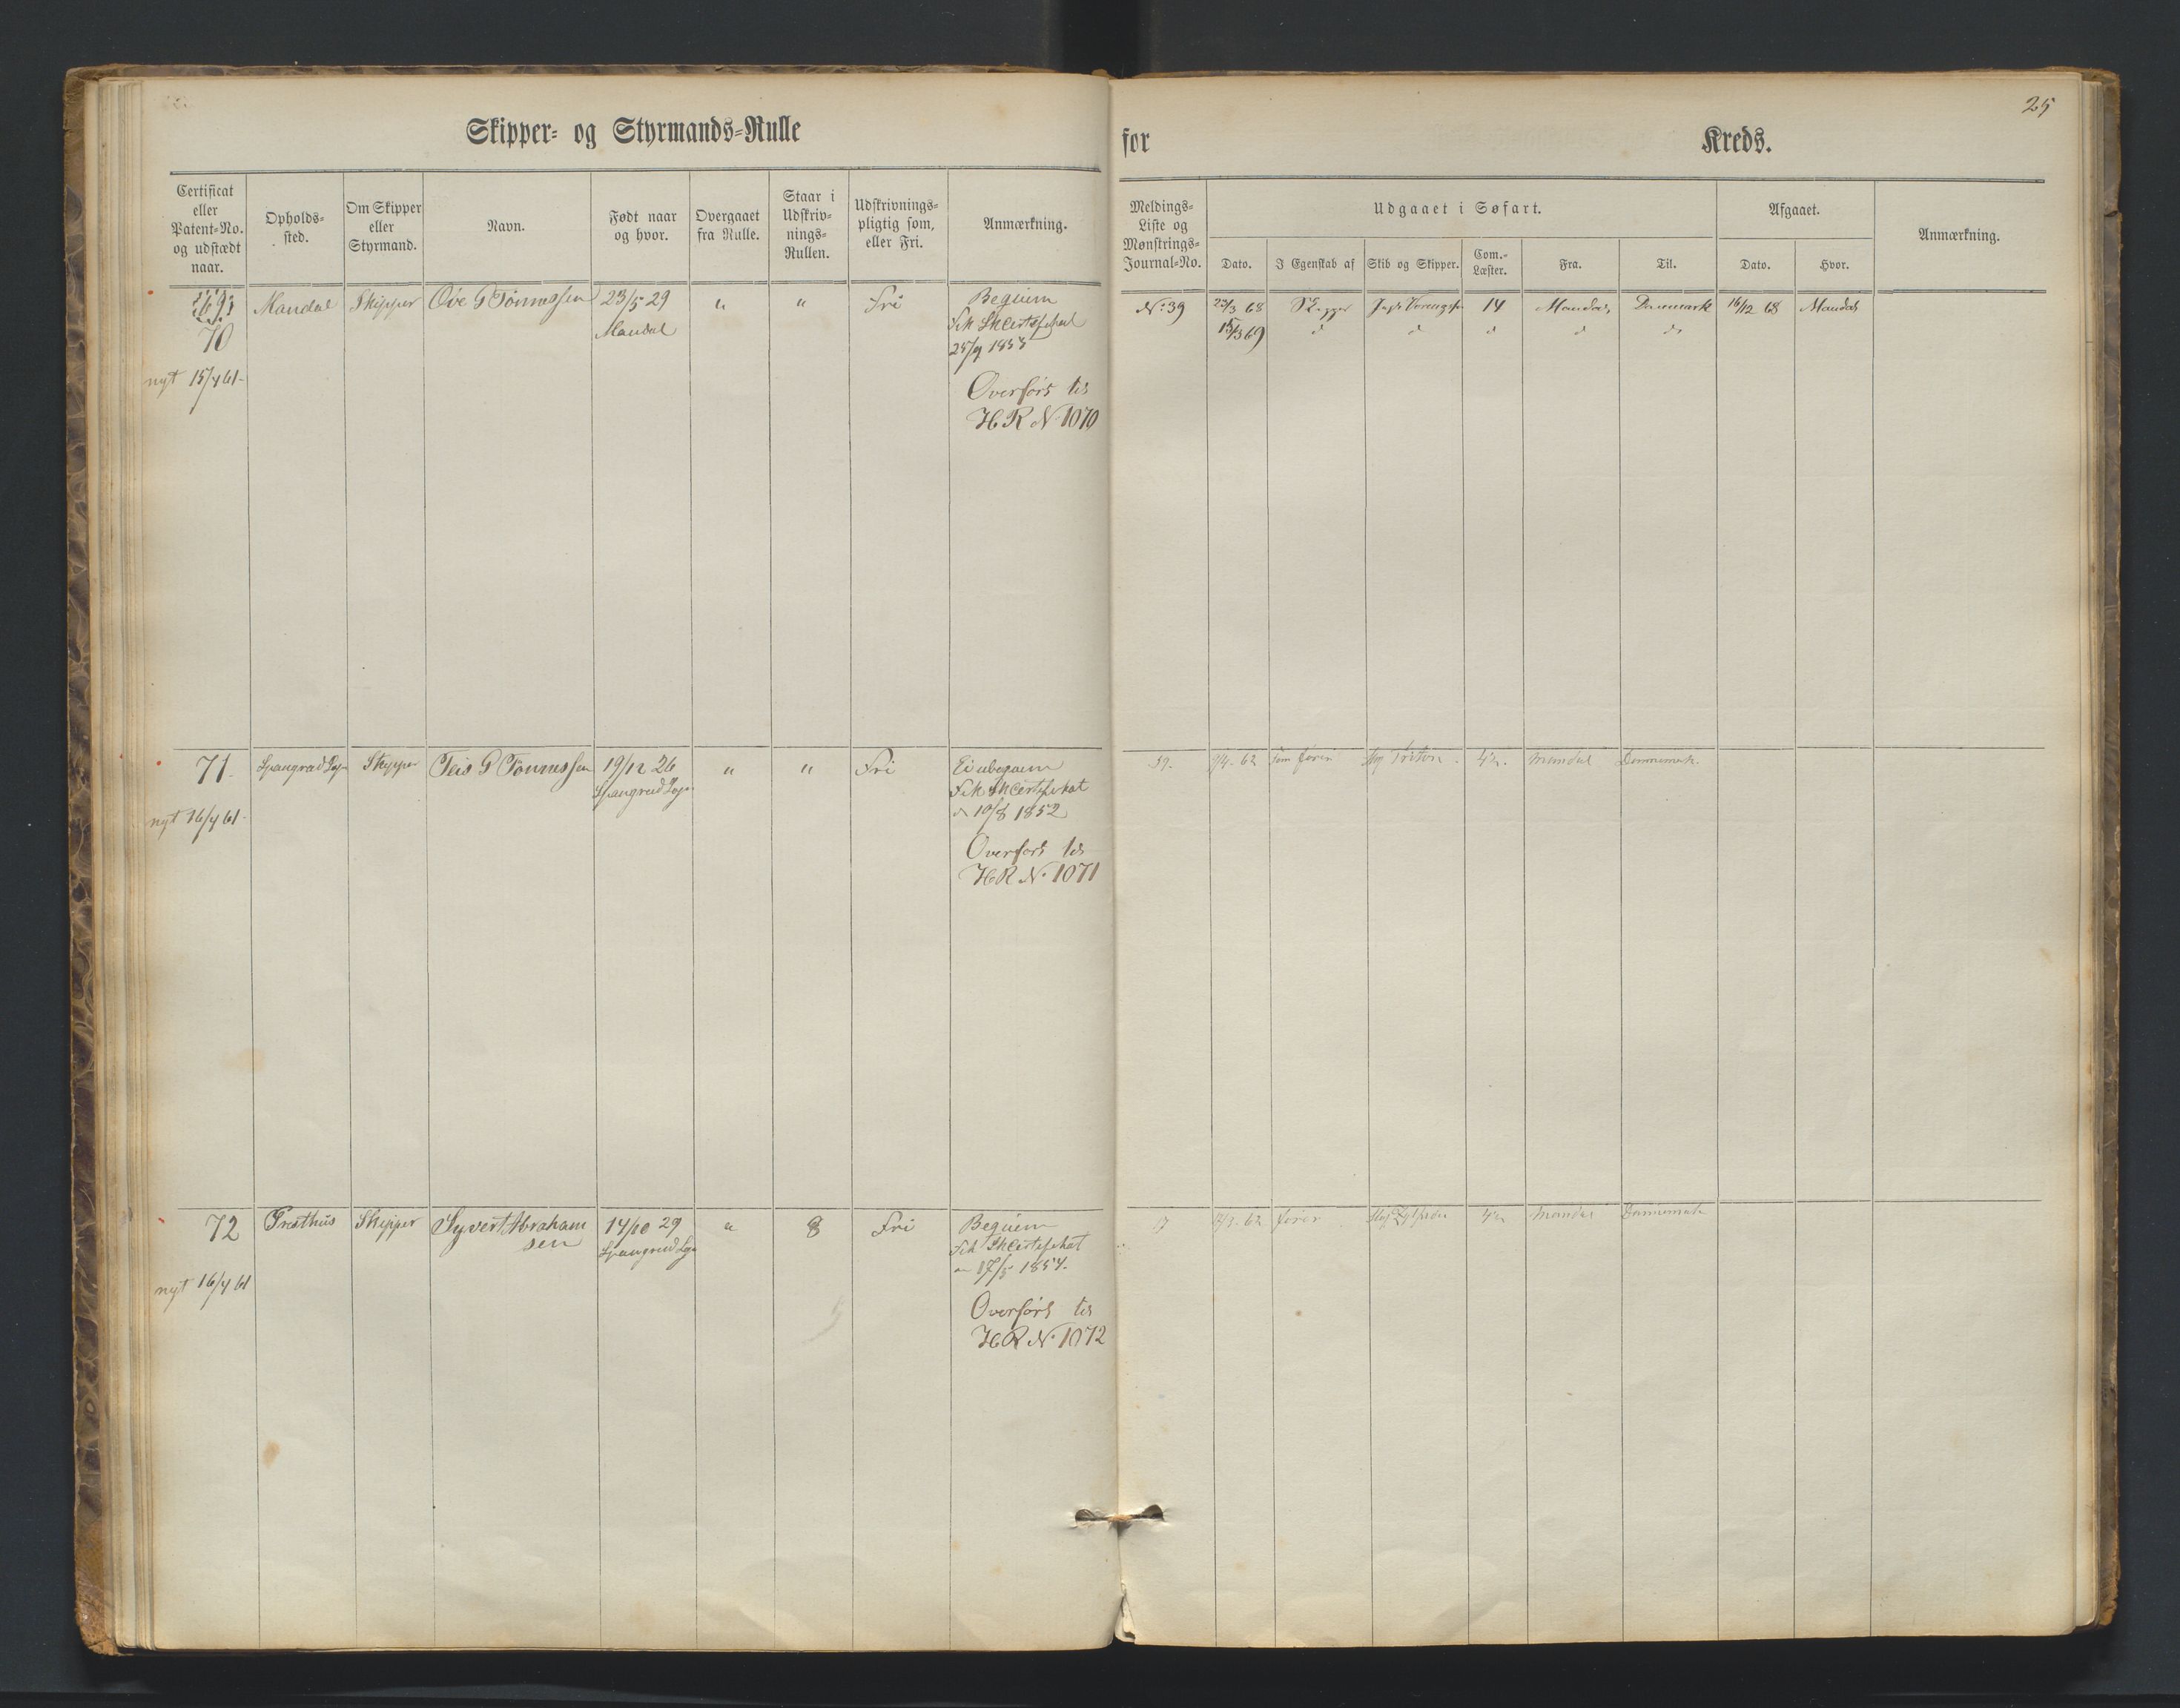 25
Skipper- og Styrmands-Rulle
for Kreds.
Certificat eller Patent-No. og udstædt naar.
Opholds-sted.
Om Skipper eller Styrmand.
Navn.
Født naar og hvor.
Overgaaet fra Rulle.
Staar i Udskriv-nings-Rullen.
Udskrivnings-pligtig som, eller Fri.
Anmærkning.
Meldings-Liste og Mønstrings-Journal-No.
Udgaaet i Søfart.
Dato.
I Egenskab af
Skib og Skipper.
Com.-Læster.
Fra.
Til.
Afgaaet.
Dato.
Hvor.
Anmærkning.
69
70
nyt 15/4 61-
Mandal
Skipper
Ove G Tönnessen
23/5 29
Mandal
"
"
Fri
Beqüem
Fik SkCertifikat
25/9 1853
Overført til
HR No 1070
No 39
23/3 68
Skipper
14
Mandal
Danmark
16/12 68
Mandal
15/3 69
d
d
d
d
do
71.
nyt 16/4 61-
Skipper
Teis G Tönnessen
19/12 26
"
"
Fri
Ei ubeqüem
Fik SkCertifikat
d 10/8 1852
Overført til
HR No 1071
39.
2/4. 62
som fører
Slup Triton
4½.
Mandal
Dannemark.
72
nyt 16/4 61
Præsthus
Skipper
Syvert Abraham
sen
14/10 29
"
8
Fri
Beqüem
Fik SkCertifikat
17/5 1854.
Overført til
HR No 1072
17
fører
4½
Mandal
Dannemark